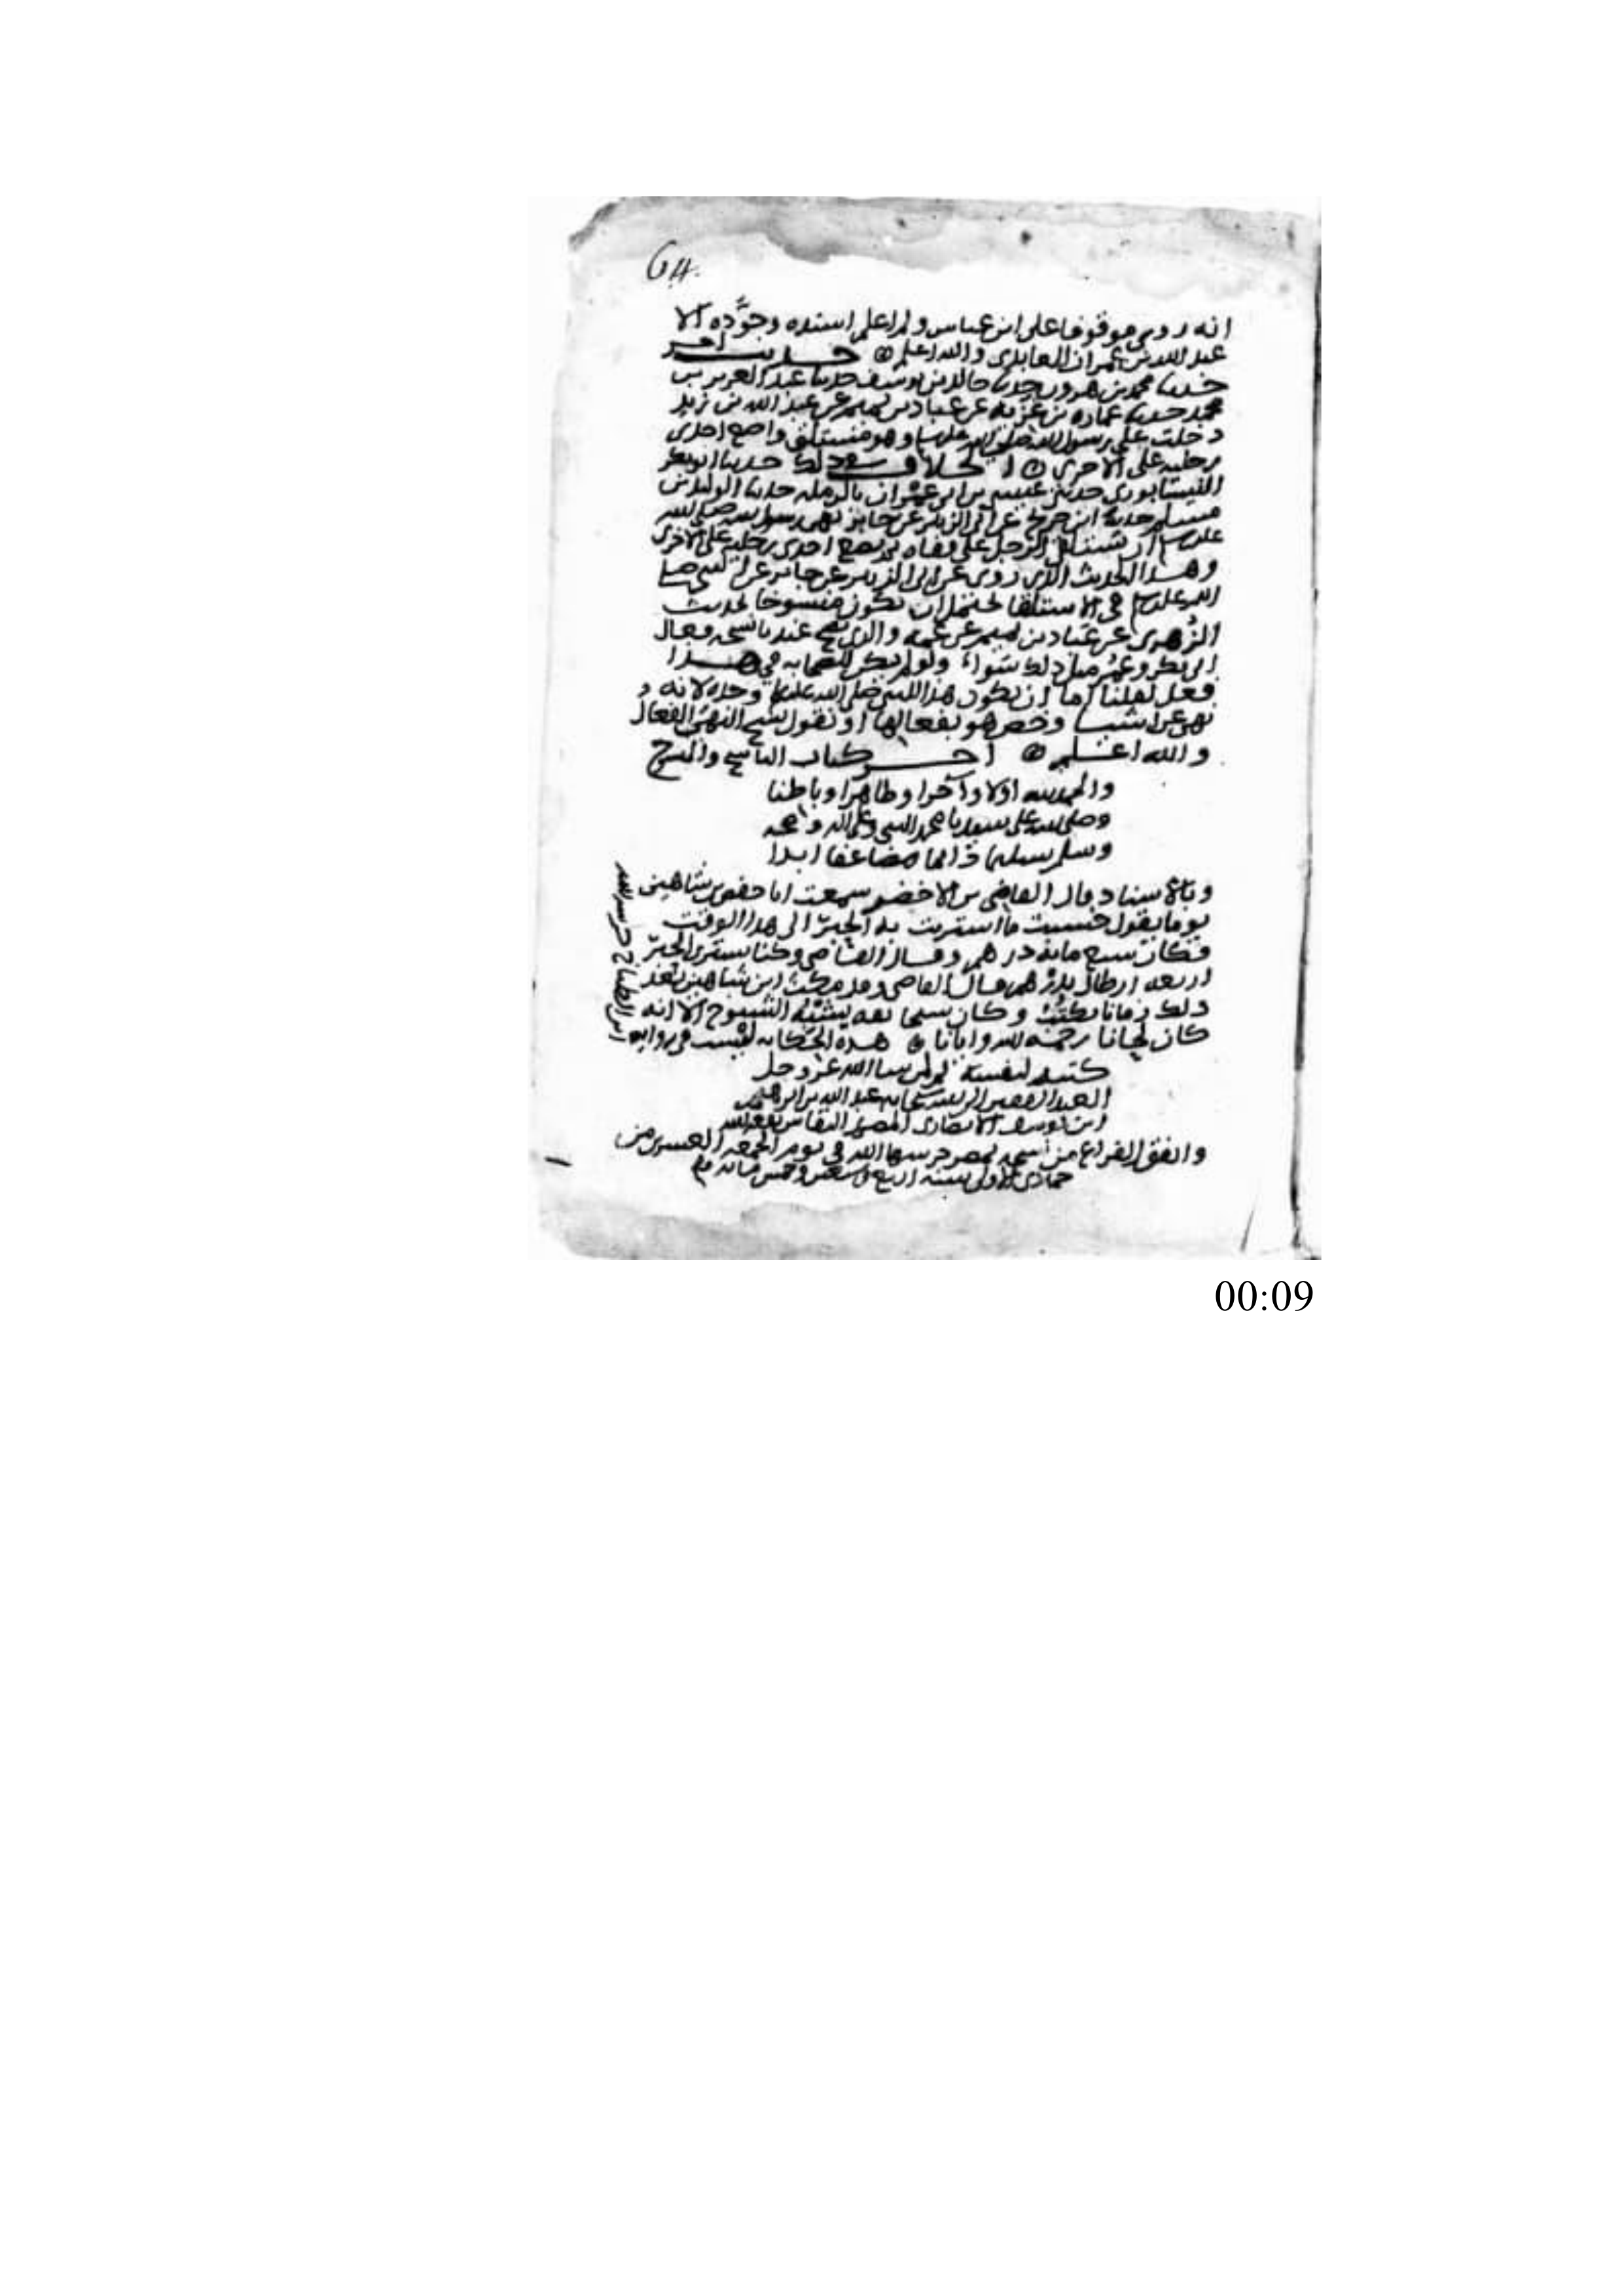 64.
انه روي موقوفا على ابن عباس ولم اعلم اسنده وجوَّده الا
عبد الله بن عمران العابدي والله اعلم حديث اخر
حدثنا محمد بن هرون حدثنا خالد بن يوسف حدثنا عبد العزيز بن
محمد حدثنا عماره بن غزيه عن عباد بن تميم عن عبد الله بن زيد
دخلت على رسول الله صلى الله عليه وهو مستلقي واضع احدى
رجليه على الاخرى الخلاف ذلك حدثنا ابو بكر
النيسابوري حدثني عيسى بن ابي عمران بالرمله حدثنا الوليد بن
مسلم حدثنا ابن جريج عن ابي الزبير عن جابر نهى رسول الله صلى الله
عليه ان يستلقي الرجل على قفاه ثم يضع احدى رجليه على الاخرى
وهذا الحديث الذي روى عن ابي الزبير عن جابر عن النبي صلى
الله عليه في الاستلقا يحتمل ان يكون منسوخا بحديث
الزُهري عن عباد بن تميم عن عمه والذي صح عندنا نسخه فعال
ابي بكر وعمر مثل ذلك سواءً ولو لم يكن للصحابه في هذا
فعل لقلنا اما ان يكون هذا للنبي صلى الله عليه وحده لانه
نهى عن اشيا وخص هو بفعالها او نقول نسخ النهي الفعال
والله اعلم اخر كتاب الناسخ والمنسوخ
والحمد لله اولا وآخرا وظاهرا وباطنا
وصلى الله على سيدنا محمد النبي وعلى اله وصحبه
وسلم تسليما دائما مضاعفا ابدا
وبالاسناد قال القاضي بن الاخضر سمعت ابا حفص بن شاهين
يوما يقول حسبت ما اشتريت به الحبرَ الى هذا الوقت
فكان سبع مايه درهم وقال القاضي وكنا نشتري الحبرَ
اربعه ارطال بدرهم قال القاضي وقد مكث ابن شاهين بعد
ذلك زمانا يكتب وكان شيخا ثقه يشبه الشيوخ الا انه
كان لحانا رحمه الله وايانا هذه الحكايه ليست في روايه
ابن الطباخ حرسه الله
كتبه لنفسه ثم لمن شا الله عز وجل
العبد الفقير الى الله سبحانه عبد الله بن ابرهيم
ابن يوسف الانصاري المصري
واتفق الفراغ من نسخه بمصر حرسها الله في يوم الجمعه العشرين من
جمادى الاولى سنه اربع وخمس مائه
00:09